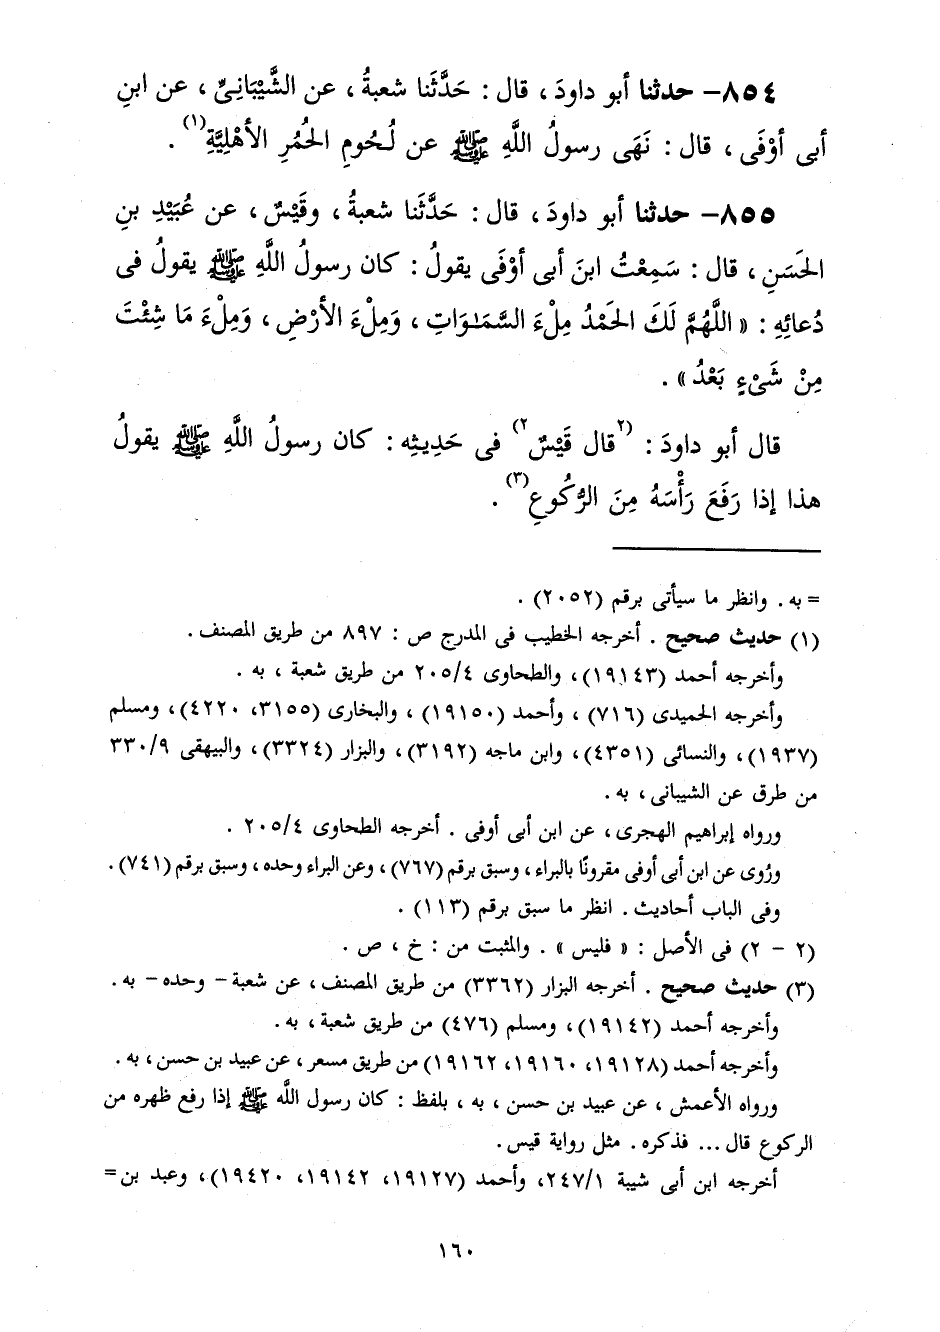 ٨٥٤- حدثنا أبو داودَ ، قال : حَدَّثَنا شعبةُ ، عن الشَّيْبَانِىِّ ، عن ابنِ
أبى أوْفَى ، قال : نَهَى رسولُ اللَّهِ ﷺ عن لُحُومِ الحُمُرِ الأهْلِيَّةِ(١) .
٨٥٥- حدثنا أبو داودَ ، قال : حَدَّثَنا شعبةُ ، وقَيْسٌ ، عن عُبَيْدِ بنِ
الحَسَنِ ، قال : سَمِعْتُ ابنَ أبى أوْفَى يقولُ : كان رسولُ اللَّهِ ﷺ يقولُ فى
دُعائِهِ : « اللَّهُمَّ لَكَ الحَمْدُ مِلْءَ السَّمَـٰوَاتِ ، وَمِلْءَ الأرْضِ ، وَمِلْءَ مَا شِئْتَ
مِنْ شَىْءٍ بَعْدُ » .
قال أبو داودَ : (٢قال قَيْسٌ٢) فى حَدِيثِه : كان رسولُ اللَّهِ ﷺ يقولُ
هذا إذا رَفَعَ رَأْسَهُ مِنَ الرُّكُوعِ(٣) .
= به . وانظر ما سيأتى برقم (٢٠٥٢) .
(١) حديث صحيح . أخرجه الخطيب فى المدرج ص : ٨٩٧ من طريق المصنف .
وأخرجه أحمد (١٩١٤٣) ، والطحاوى ٢٠٥/٤ من طريق شعبة ، به .
وأخرجه الحميدى (٧١٦) ، وأحمد (١٩١٥٠) ، والبخارى (٣١٥٥، ٤٢٢٠) ، ومسلم
(١٩٣٧) ، والنسائى (٤٣٥١) ، وابن ماجه (٣١٩٢) ، والبزار (٣٣٢٤) ، والبيهقى ٣٣٠/٩
من طرق عن الشيبانى ، به .
ورواه إبراهيم الهجرى ، عن ابن أبى أوفى . أخرجه الطحاوى ٢٠٥/٤ .
ورُوى عن ابن أبى أوفى مقرونًا بالبراء ، وسبق برقم (٧٦٧) ، وعن البراء وحده ، وسبق برقم (٧٤١) .
وفى الباب أحاديث . انظر ما سبق برقم (١١٣) .
(٢ - ٢) فى الأصل : « فليس » . والمثبت من : خ ، ص .
(٣) حديث صحيح . أخرجه البزار (٣٣٦٢) من طريق المصنف ، عن شعبة - وحده - به .
وأخرجه أحمد (١٩١٤٢) ، ومسلم (٤٧٦) من طريق شعبة ، به .
وأخرجه أحمد (١٩١٢٨، ١٩١٦٠، ١٩١٦٢) من طريق مسعر ، عن عبيد بن حسن ، به .
ورواه الأعمش ، عن عبيد بن حسن ، به ، بلفظ : كان رسول اللَّه ﷺ إذا رفع ظهره من
الركوع قال ... فذكره . مثل رواية قيس .
أخرجه ابن أبى شيبة ٢٤٧/١، وأحمد (١٩١٢٧، ١٩١٤٢، ١٩٤٢٠) ، وعبد بن =
١٦٠